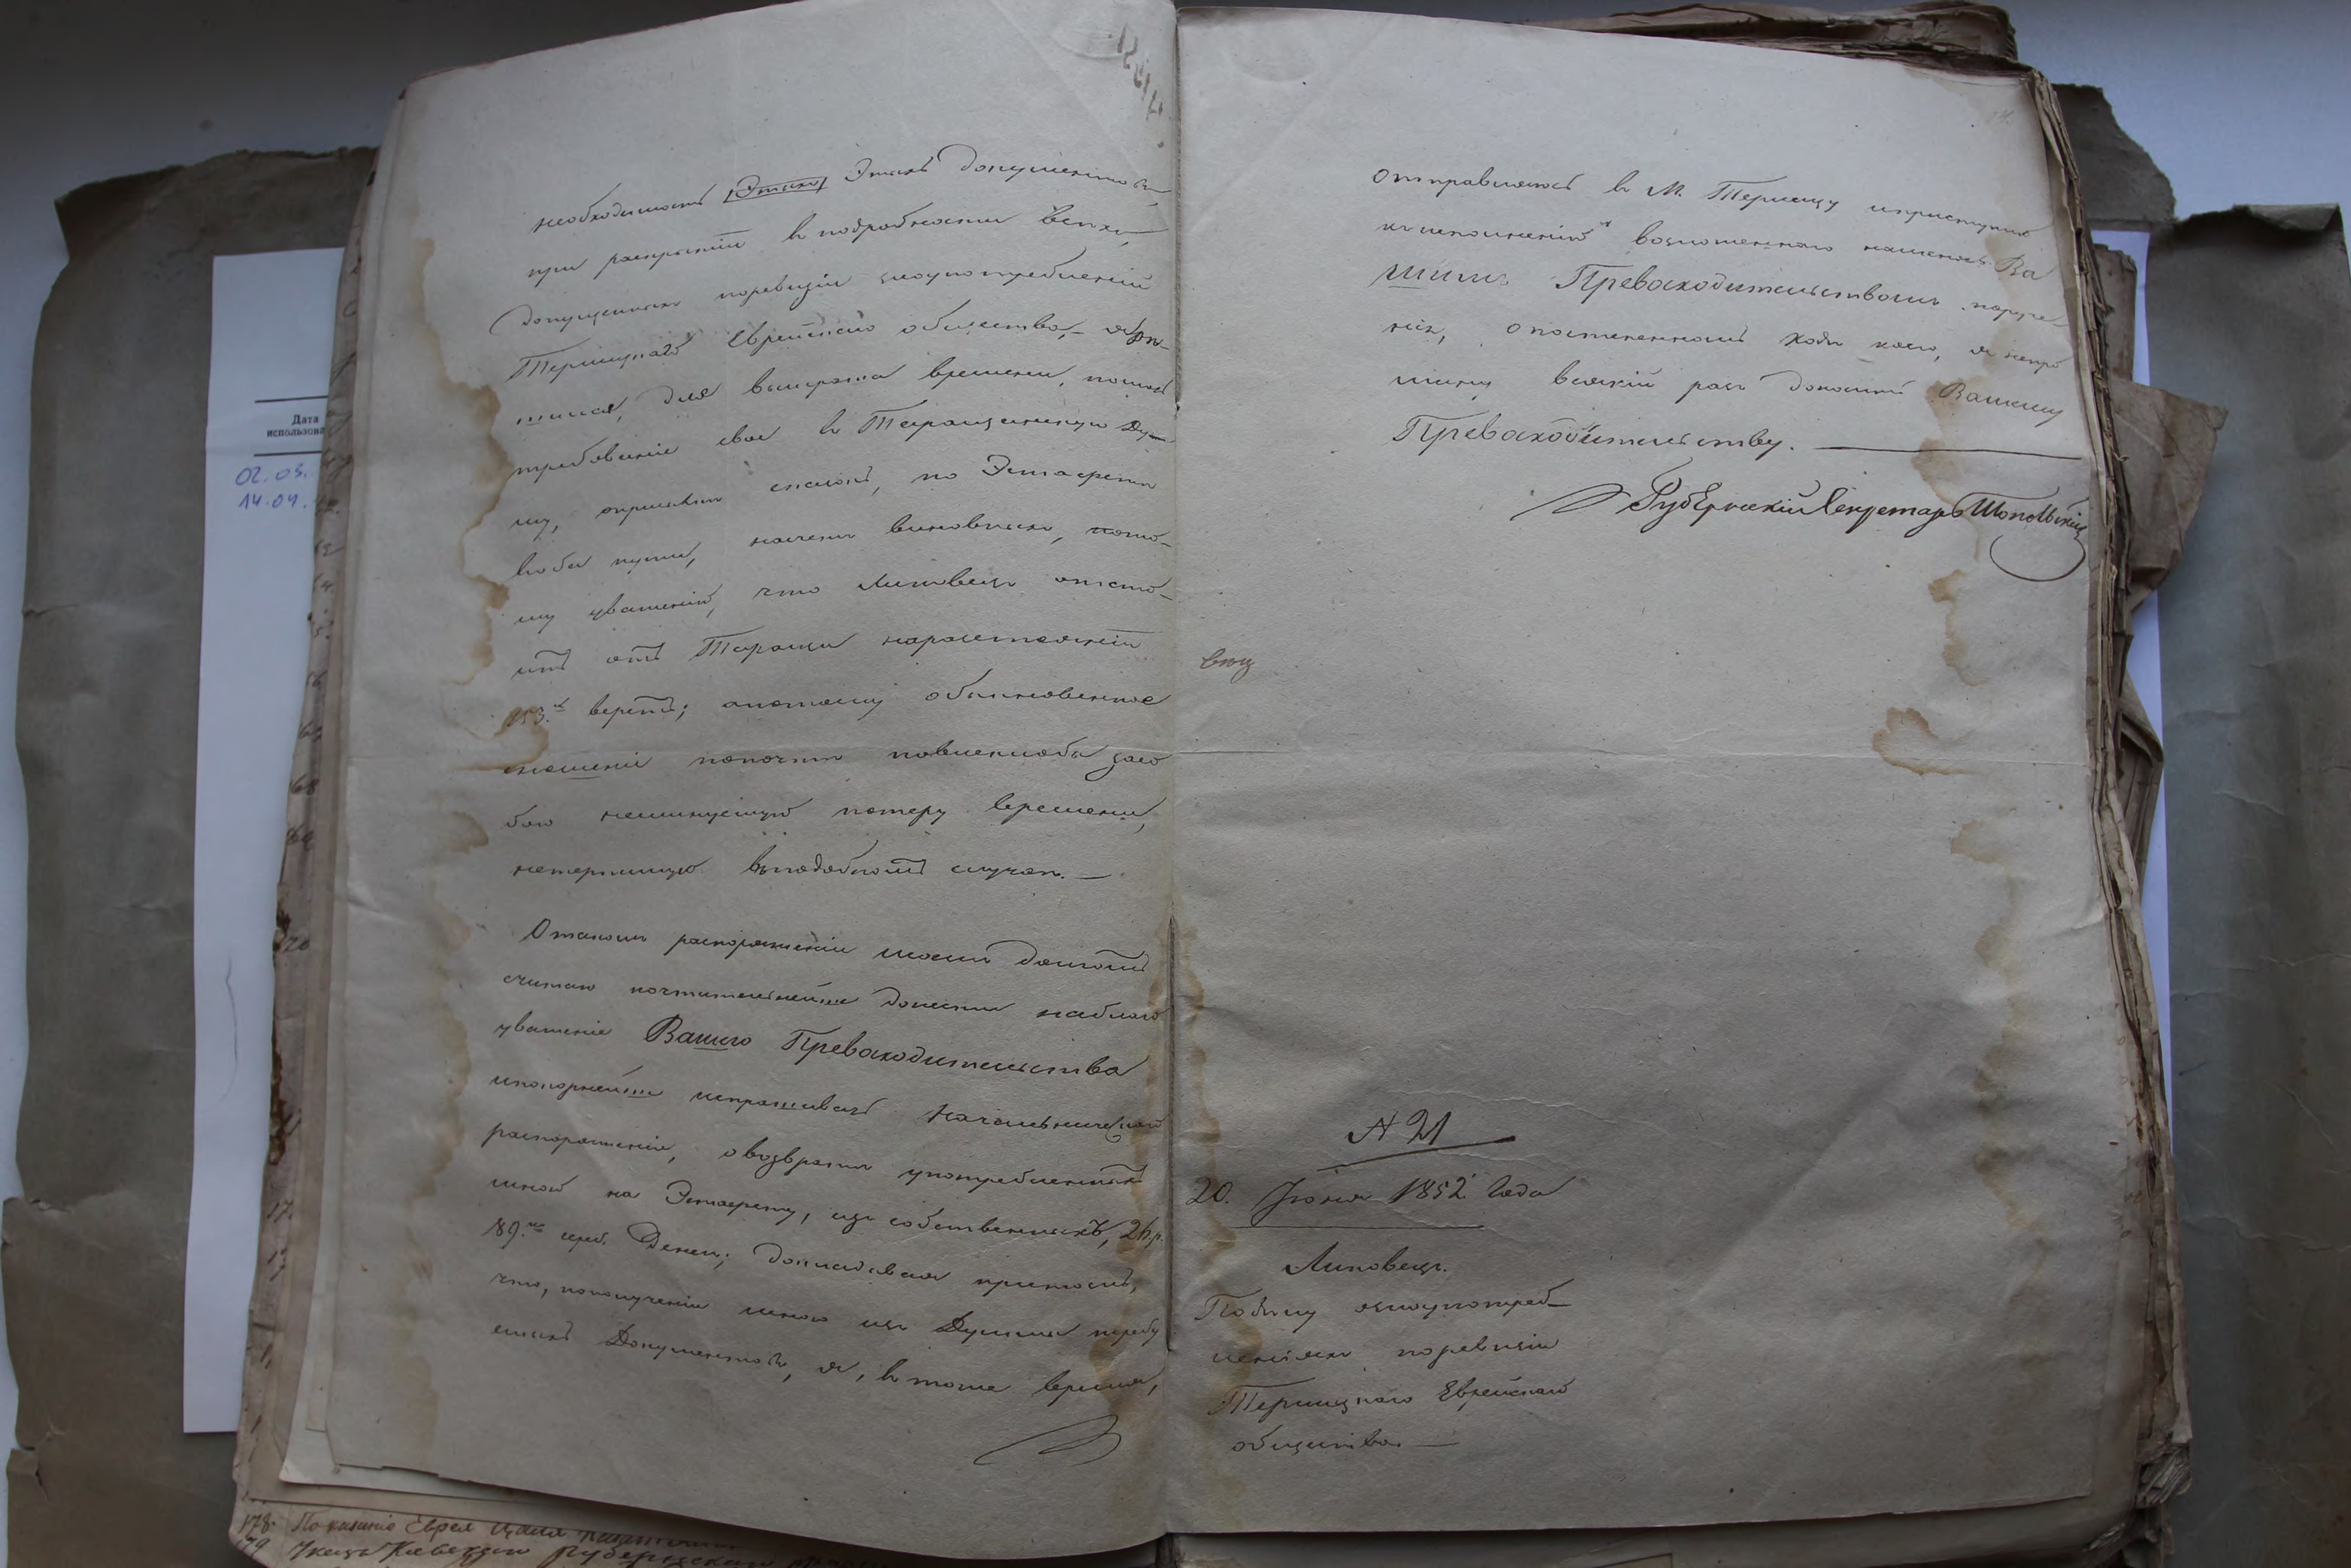 необходимость Этихъ Этихъ Документовъ,
при раскрытіи въ подробности всѣхъ
допущенныхъ поревизіи злоупотребленій
Терлицкаго Еврейскаго общества, — я рѣ-
шился, для выиграша времени, послать
требованіе свое въ Таращанскую Ду-
му,
въоба пути, насчетъ виновныхъ, пото-
му уваженію, что Липовецъ отсто-
итъ отъ Таращи наразстояніи
153.хъ верстъ; апотому обыкновенное
сношеніе попочтѣ повлеклобы засо
бою неминуемую потерю времени,
нетерпимую въподобномъ случаѣ. —
Отакомъ распоряженіи моемъ Долгомъ
считаю почтительнѣйше донести наблаго
уваженіе Вашего Превосходительства
ипокорнѣйше испрашивать Начальнической
распоряженія, овозвратѣ употребленныхъ
мною на Эстафету, изъ собственныхъ, 26 р.
89.ть сереб. Денегъ; докладывая притомъ,
что, пополученіи мною изъ Думы требу
емыхъ Документовъ, я, въ тоже время,
отправляюсь въ М. Терлицу иприступлю
къ исполненію возложеннаго наменя Ва
шимъ Превосходительствомъ поруче-
нія, опостепенномъ ходѣ коего, я непре
мину всякій разъ доносить Вашему
Превосходительству.
Губернскій Секретарь
№ 21
20. Іюня 1852 года
Липовецъ.
Подѣлу озлоупотреб-
леніяхъ поревизіи
Терлицкаго Еврейскаго
общества. —
Дата
использова
02.03.
14.04.
178. Показаніе Еврея
79 Указъ Кіевского Губернскаго